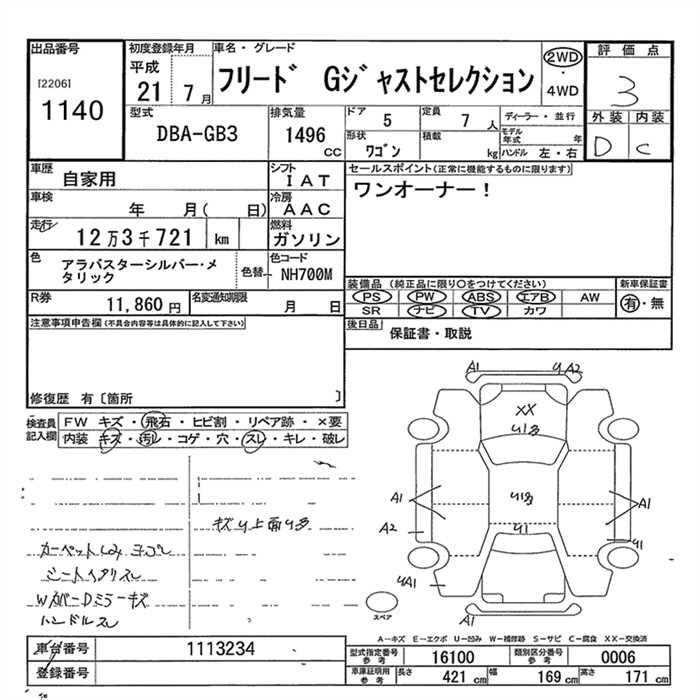 出品番号
[2206]
1140
初度登録年月
平成
21 7月
車名・グレード
フリード Gジャストセレクション
2WD
・
4WD
評価点
3
外装 内装
D C
型式
DBA-GB3
排気量
1496
CC
ドア
5
定員
7
人
ディーラー・並行
形状
ワゴン
積載
kg
モデル年式
年
ハンドル 左・右
車歴
自家用
シフト
IAT
車検
年 月( 日)
冷房
AAC
走行
12万3千721 km
燃料
ガソリン
色
アラバスターシルバー・メ
タリック
色替
色コード
NH700M
R券
11,860 円
名変通知期限
月 日
セールスポイント(正常に機能するものに限ります)
ワンオーナー!
装備品(純正品に限り○をつけてください)
PS PW ABS エアB AW
SR ナビ TV カワ
新車保証書
有・無
後日品
保証書・取説
注意事項申告欄(不具合内容等は具体的に記入して下さい)
修復歴 有〔箇所 〕
検査員
記入欄
FW キズ・飛石・ヒビ割・リペア跡・×要
内装 キズ・汚レ・コゲ・穴・スレ・キレ・破レ
カーペットしみ ヨゴレ
シートヘタリスレ
WカバーDミラーキズ
ハンドルスレ
A1
A2
XX
A1
A1
A2
U1
U1
A1
スペア
A-キズ E-エクボ U-凹み W-補修跡 S-サビ C-腐食 XX-交換済
車台番号
1113234
登録番号
型式指定番号
参考
16100
類別区分番号
参考
0006
車庫証明用
参考
長さ
421 cm
幅
169 cm
高さ
171 cm